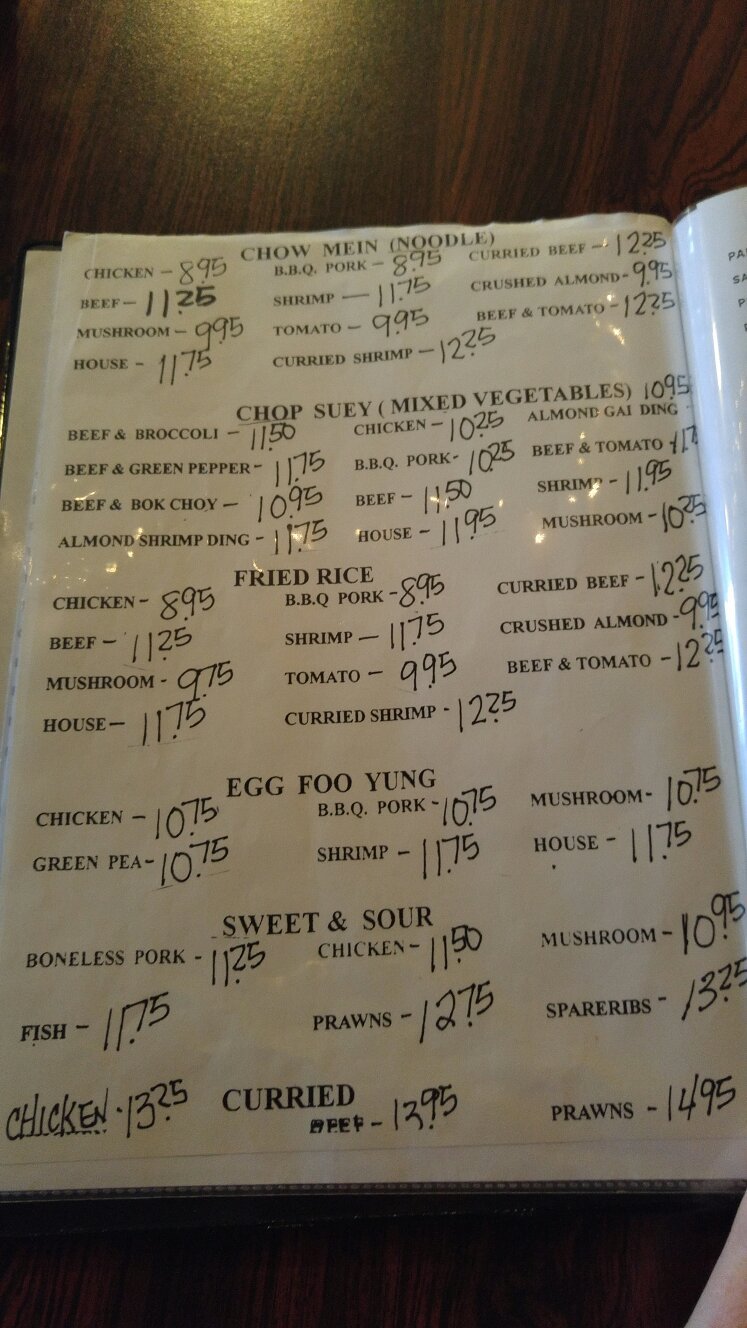 CHOW MEIN (NOODLE)
CHICKEN - 8.95 B.B.Q. PORK - 8.95 CURRIED BEEF - 12.25
BEEF - 11.25 SHRIMP - 11.75 CRUSHED ALMOND - 9.95
MUSHROOM - 9.95 TOMATO - 9.95 BEEF & TOMATO - 12.25
HOUSE - 11.75 CURRIED SHRIMP - 12.25
CHOP SUEY ( MIXED VEGETABLES)
BEEF & BROCCOLI - 11.50 CHICKEN - 10.25 ALMOND GAI DING 10.95
BEEF & GREEN PEPPER - 11.75 B.B.Q. PORK - 10.25 BEEF & TOMATO
BEEF & BOK CHOY - 10.95 BEEF - 11.50 SHRIMP - 11.95
ALMOND SHRIMP DING - 11.75 HOUSE - 11.95 MUSHROOM - 10.25
FRIED RICE
CHICKEN - 8.95 B.B.Q PORK - 8.95 CURRIED BEEF - 12.25
BEEF - 11.25 SHRIMP - 11.75 CRUSHED ALMOND - 9.95
MUSHROOM - 9.75 TOMATO - 9.95 BEEF & TOMATO - 12.25
HOUSE - 11.75 CURRIED SHRIMP - 12.25
EGG FOO YUNG
CHICKEN - 10.75 B.B.Q. PORK - 10.75 MUSHROOM - 10.75
GREEN PEA - 10.75 SHRIMP - 11.75 HOUSE - 11.75
SWEET & SOUR
BONELESS PORK - 11.25 CHICKEN - 11.50 MUSHROOM - 10.95
FISH - 11.75 PRAWNS - 12.75 SPARERIBS - 13.25
CURRIED
CHICKEN - 13.25 BEEF - 13.95 PRAWNS - 14.95